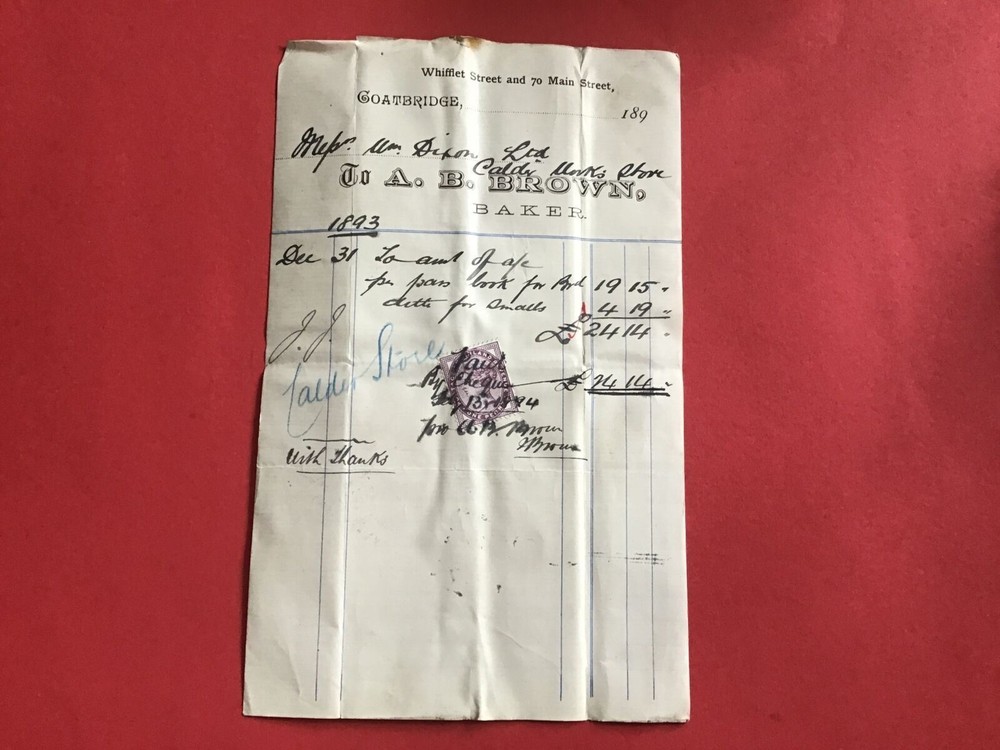 Whifflet Street and 70 Main Street,
COATBRIDGE, 189
Messrs. Wm. Dixon Ltd
Calder Works Store
To A. B. BROWN,
BAKER.
1893
Dec 31 To amt of a/c
per pass book for Brd 19 15 "
ditto for Smalls 4 19 "
£ 24 14 "
J. J.
Calder Store
Paid
By Cheque £ 24 14 "
13 94
pro A. B. Brown
J Brown
With Thanks